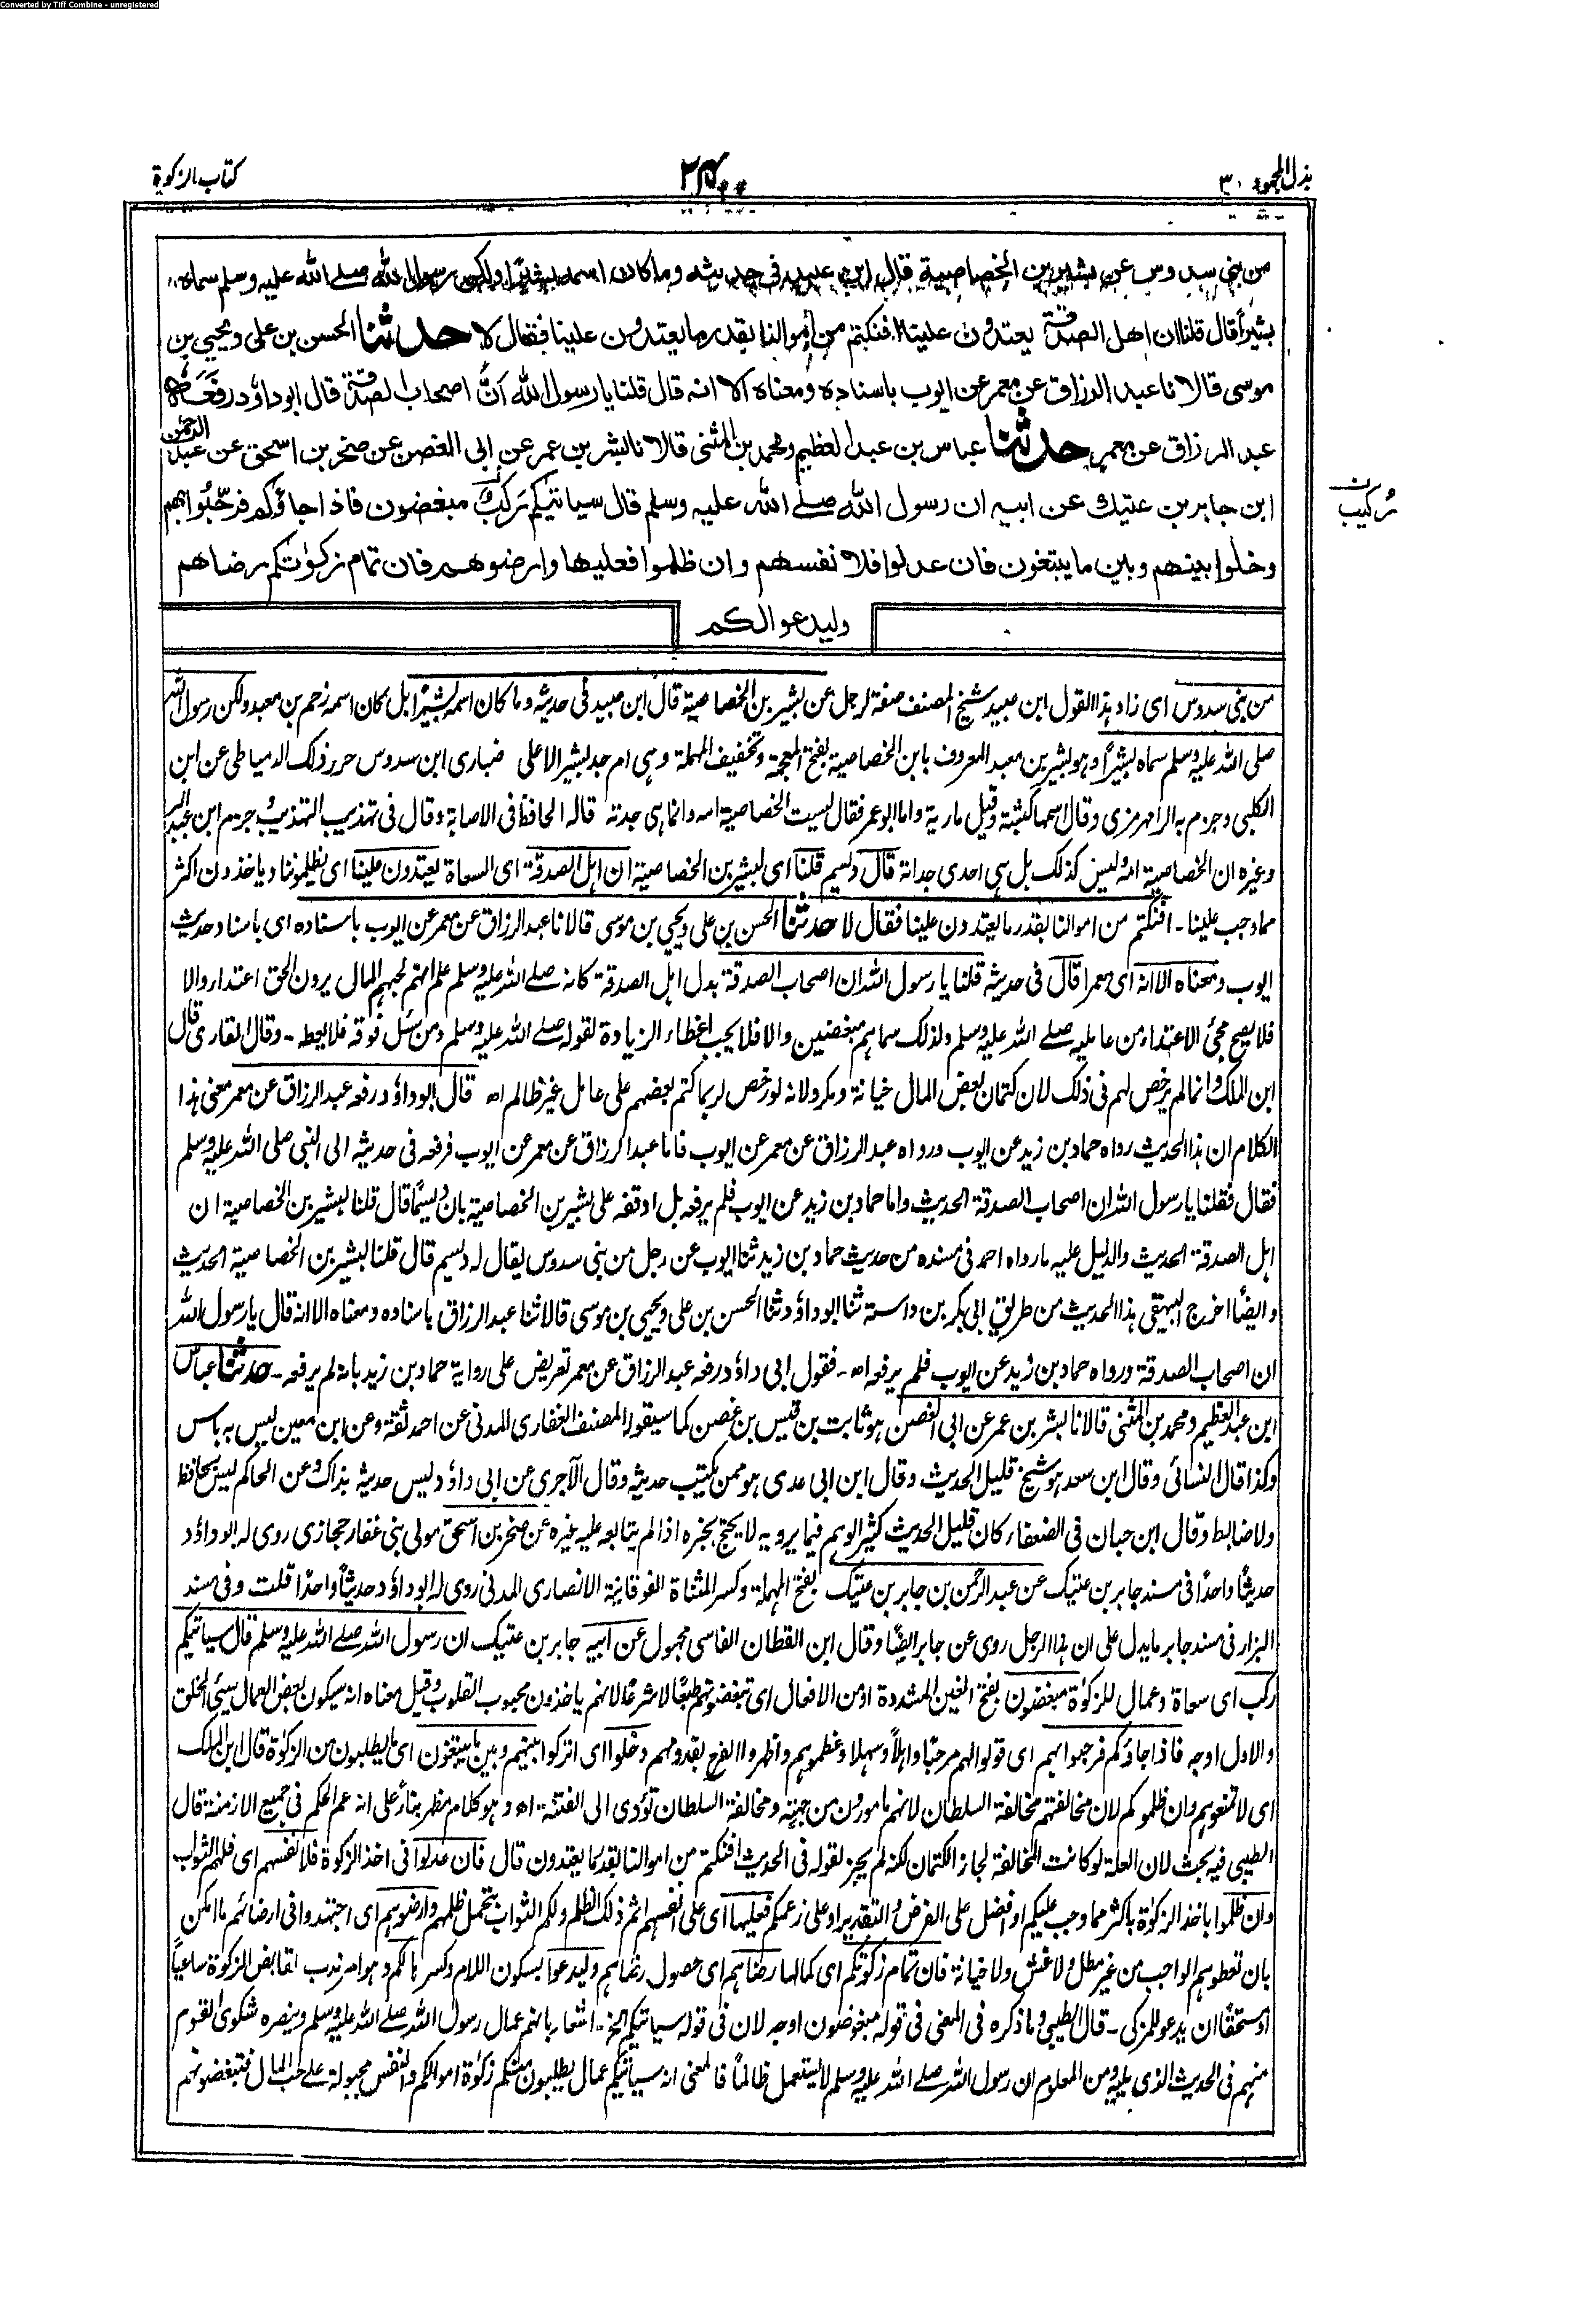 Converted by Tiff Combine - unregistered
بذل المجهود ٣
٢٤٠٠
كتاب الزكوة
من بني سدوس عن بشير بن الخصاصية قال ابن عبيد في حديثه وما كان اسمه بشيرًا ولكن رسول الله صلے الله عليه وسلم سماه
بشيرًا قال قلنا ان اهل الصدقة يعتدون علينا افنكتم من اموالنا بقدر ما يعتدون علينا فقال لا حدثنا الحسن بن على ويحيى بن
موسى قالا نا عبد الرزاق عن معمر عن ايوب باسناده ومعناه الا انه قال قلنا يا رسول الله انّ اصحاب الصدقة قال ابو داؤد رفعه
عبد الرزاق عن معمر حدثنا عباس بن عبد العظيم ومحمد بن المثنى قالا نا بشر بن عمر عن ابى الغصن عن صخر بن اسحق عن عبد الرحمن
ابن جابر بن عتيك عن ابيه ان رسول الله صلے الله عليه وسلم قال سياتيكم ركب مبغضون فاذا جاؤكم فرحّبوا بهم
ركيب ن
وخلوا بينهم وبين ما يبتغون فان عدلوا فلانفسهم وان ظلموا فعليها وارضوهم فان تمام زكوٰتكم رضاهم
وليدعوا لكم
من بنى سدوس اى زاد هذا القول ابن عبيد شيخ المصنف صفة لرجل عن بشير بن الخصاصية قال ابن عبيد فى حديثه وما كان اسمه بشيرًا بل كان اسمه زحم بن معبد ولكن رسول الله
صلى الله عليه وسلم سماه بشيرًا وهو بشير بن معبد المعروف بابن الخصاصية بفتح المعجمة وتخفيف المهملة وهى ام جد بشير الاعلى ضبارى ابن سدوس حرر ذلك الدمياطى عن ابن
الكلبى وجزم به الرامهرمزى وقال اسمها كبشة وقيل مارية واما ابو عمر فقال ليست الخصاصية امه وانما هى جدته قاله الحافظ فى الاصابة وقال فى تهذيب التهذيب وجزم ابن عبد البر
وغيره ان الخصاصية امه وليس كذلك بل هى احدى جداته قال ديسم قلنا اى لبشير بن الخصاصية ان اهل الصدقة اى السعاة يعتدون علينا اى يظلموننا وياخذون اكثر
مما وجب علينا ـ افنكتم من اموالنا بقدر ما يعتدون علينا فقال لا حدثنا الحسن بن على ويحيى بن موسى قالا نا عبد الرزاق عن معمر عن ايوب باسناده اى باسناد حديث
ايوب ومعناه الا انه اى معمرا قال فى حديثه قلنا يا رسول الله ان اصحاب الصدقة بدل اهل الصدقة كانه صلے الله عليه وسلم علم انهم لحبهم المال يرون الحق اعتداء والا
فلا يصح مجئ الاعتداء من عامليه صلے الله عليه وسلم ولذلك سماهم مبغضين والا فلا يجب اعطاء الزيادة لقوله صلے الله عليه وسلم ومن سئل فوقه فلا يعط ـ وقال القارى قال
ابن الملك وانما لم يرخص لهم فى ذلك لان كتمان بعض المال خيانة ومكر ولانه لو رخص لربما كتم بعضهم على عامل غير ظالم اه قال ابو داؤد رفعه عبد الرزاق عن معمر معنى هذا
الكلام ان هذا الحديث رواه حماد بن زيد عن ايوب ورواه عبد الرزاق عن معمر عن ايوب فاما عبد الرزاق عن معمر عن ايوب فرفعه فى حديثه الى النبى صلى الله عليه وسلم
فقال فقلنا يا رسول الله ان اصحاب الصدقة الحديث واما حماد بن زيد عن ايوب فلم يرفعه بل اوقفه على بشير بن الخصاصية بان ديسمًا قال قلنا لبشير بن الخصاصية ان
اهل الصدقة الحديث والدليل عليه ما رواه احمد فى مسنده من حديث حماد بن زيد ثنا ايوب عن رجل من بنى سدوس يقال له ديسم قال قلنا لبشير بن الخصاصية الحديث
وايضًا اخرج البيهقى هذا الحديث من طريق ابى بكر بن داسة ثنا ابو داؤد ثنا الحسن بن على ويحيى بن موسى قالا ثنا عبد الرزاق باسناده ومعناه الا انه قال يا رسول الله
ان اصحاب الصدقة ورواه حماد بن زيد عن ايوب فلم يرفعه اه ـ فقول ابى داؤد رفعه عبد الرزاق عن معمر تعريض على رواية حماد بن زيد بانه لم يرفعه ـ حدثنا عباس
ابن عبد العظيم ومحمد بن المثنى قالا نا بشر بن عمر عن ابى الغصن هو ثابت بن قيس بن غصن كما سيقوله المصنف الغفارى المدنى عن احمد ثقة وعن ابن معين ليس به باس
وكذا قال النسائى وقال ابن سعد هو شيخ قليل الحديث وقال ابن ابى عدى هو ممن يكتب حديثه وقال الآجرى عن ابى داؤد ليس حديثه بذاك وعن الحاكم ليس بحافظ
ولا ضابط وقال ابن حبان فى الضعفاء كان قليل الحديث كثير الوهم فيما يرويه لا يحتج بخبره اذا لم يتابعه عليه غيره عن صخر بن اسحق مولى بنى غفار حجازى روى له ابو داؤد
حديثًا واحدًا فى مسند جابر بن عتيك عن عبد الرحمن بن جابر بن عتيك بفتح المهملة وكسر المثناة الفوقانية الانصارى المدنى روى له ابو داؤد حديثًا واحدًا قلت وفى مسند
البزار فى مسند جابر ما يدل على ان هذا الرجل روى عن جابر ايضًا وقال ابن القطان الفاسى مجهول عن ابيه جابر بن عتيك ان رسول الله صلے الله عليه وسلم قال سياتيكم
ركب اى سعاة وعمال للزكوٰة مبغضون بفتح الغين المشددة او من الافعال اى تبغضونهم طبعًا لا شرعًا لانهم ياخذون محبوب القلوب وقيل معناه انه سيكون بعض العمال سيئى الخلق
والاول اوجه فاذا جاؤكم فرحبوا بهم اى قولوا لهم مرحبًا واهلًا وسهلا وعظموهم واظهروا الفرح بقدومهم وخلوا اى اتركوا بينهم وبين ما يبتغون اى ما يطلبون من الزكوٰة قال ابن الملك
اى لا تمنعوهم وان ظلموكم لان مخالفتهم مخالفة السلطان لانهم مامورون من جهته ومخالفة السلطان تؤدى الى الفتنة اه وهو كلام مظهر بناءً على انه عم الحكم فى جميع الازمنة قال
الطيبى فيه بحث لان العلة لو كانت المخالفة لجاز الكتمان لكنه لم يجز لقوله فى الحديث افنكتم من اموالنا بقدر ما يعتدون قال فان عدلوا فى اخذ الزكوة فلانفسهم اى فلهم الثواب
وان ظلموا باخذ الزكوٰة باكثر مما وجب عليكم او افضل على الفرض والتقدير او على زعمكم فعليها اى على انفسهم اثم ذلك الظلم ولكم الثواب بتحمل ظلمهم وارضوهم اى اجتهدوا فى ارضائهم ما امكن
بان تعطوهم الواجب من غير مطل ولا غش ولا خيانة فان تمام زكوتكم اى كمالها رضاهم اى حصول رضاهم وليدعوا بسكون اللام وكسرها لكم وهو امر ندب لقابض الزكوة ساعيًا
او مستحقًا ان يدعو للمزكى ـ قال الطيبى وما ذكره فى المعنى فى قوله مبغوضون اوجه لان فى قوله سياتيكم الخ ـ اشعار بانهم عمال رسول الله صلے الله عليه وسلم وينصره شكوى القوم
منهم فى الحديث الذى يليه ومن المعلوم ان رسول الله صلے الله عليه وسلم لا يستعمل ظالمًا فالمعنى انه سياتيكم عمال يطلبون منكم زكوٰة اموالكم والنفس مجبولة على حب المال فتبغضونهم